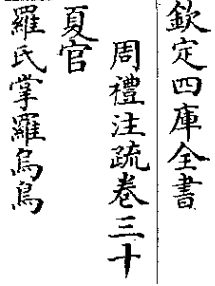 欽定四庫全書
周禮注疏卷三十
夏官
羅氏掌羅烏鳥